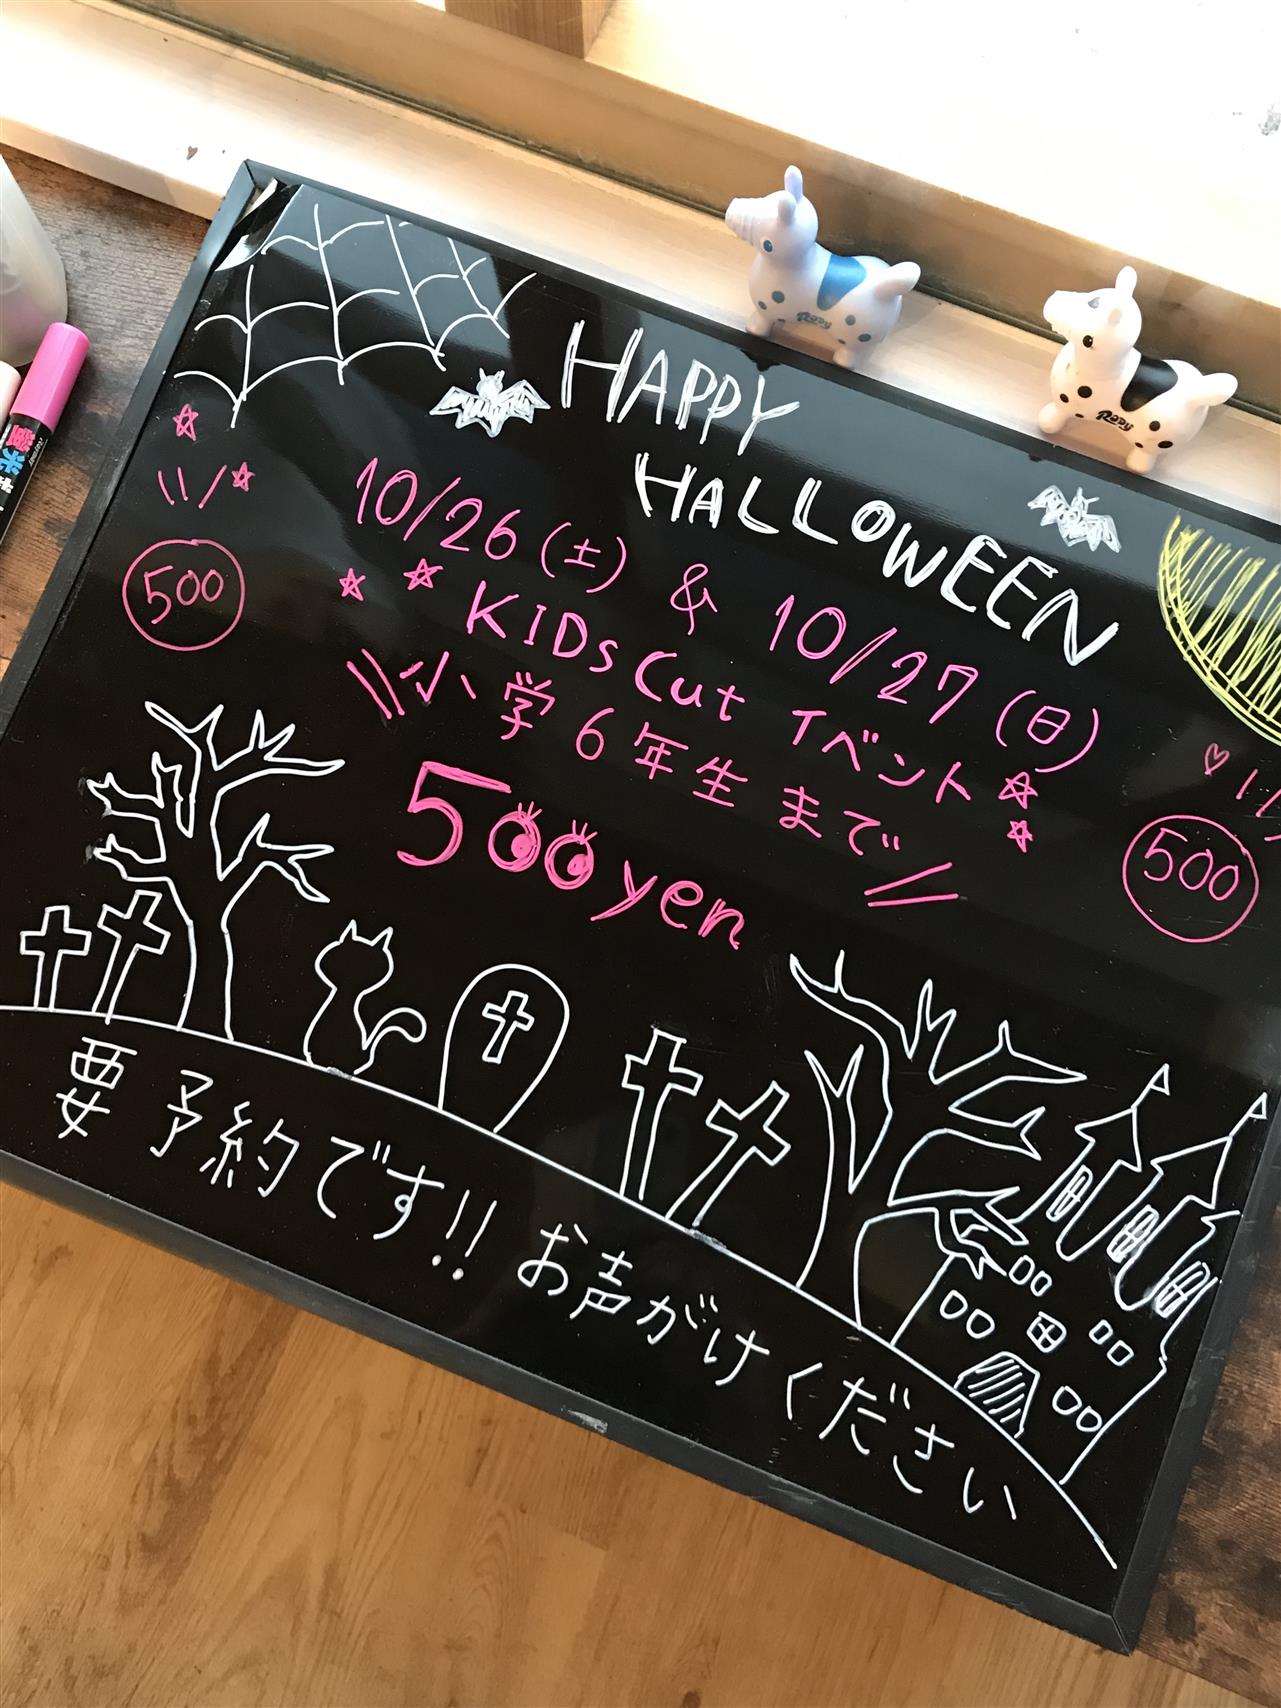 HAPPY
HALLOWEEN
10/26(土) & 10/27(日)
KIDs Cut イベント
小学6年生まで
500yen
500
500
要予約です!! お声がけください
Rody
Rody
蛍光